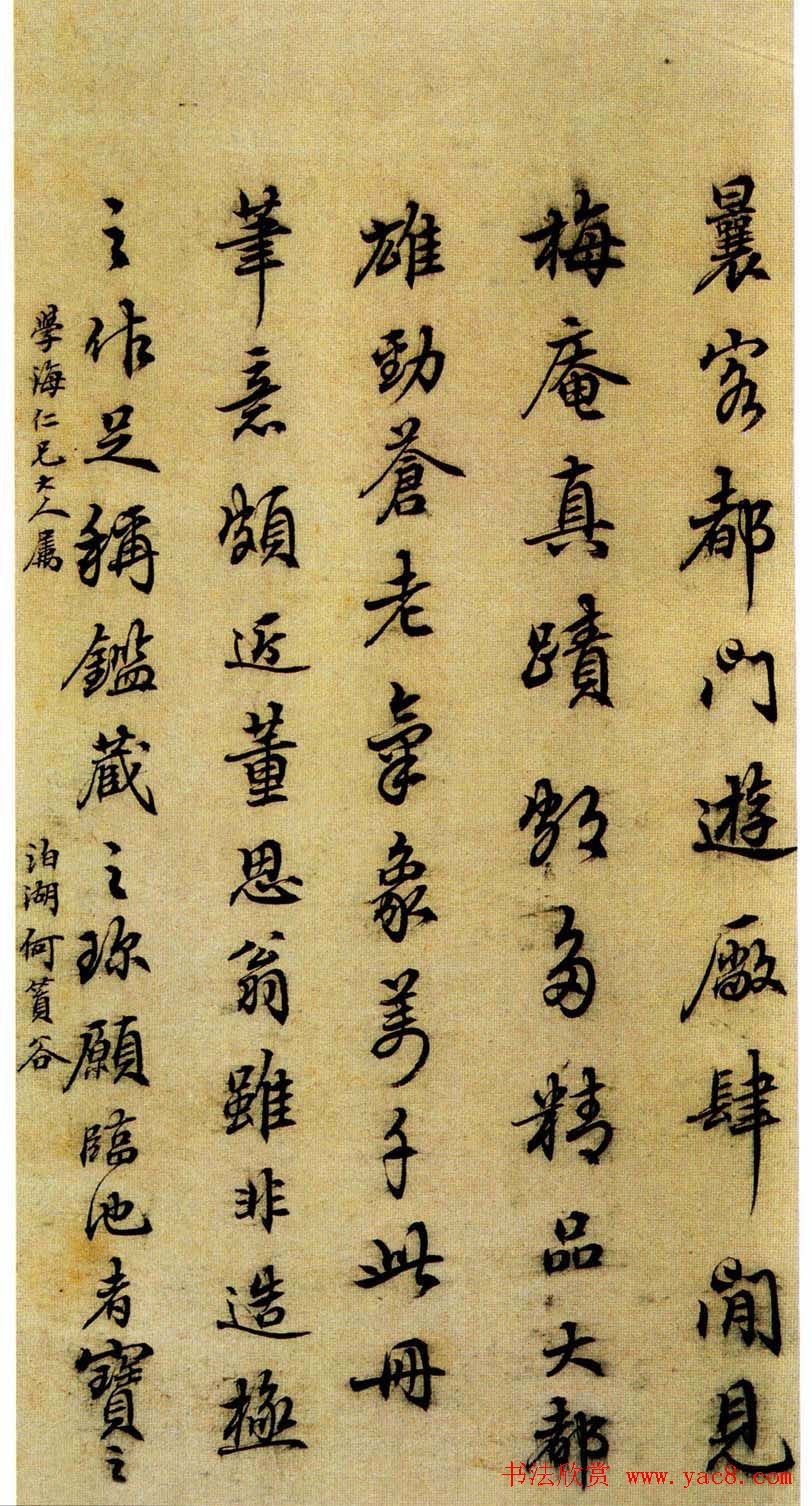 曩客都門遊廠肆間見
梅庵真蹟數多精品大都
雄勁蒼老氣象萬千此冊
筆意頗近董思翁雖非造極
之作足稱鑑藏之珎願臨池者寶之
學海仁兄大人屬
泊湖何篔谷
书法欣赏 www.yac8.com